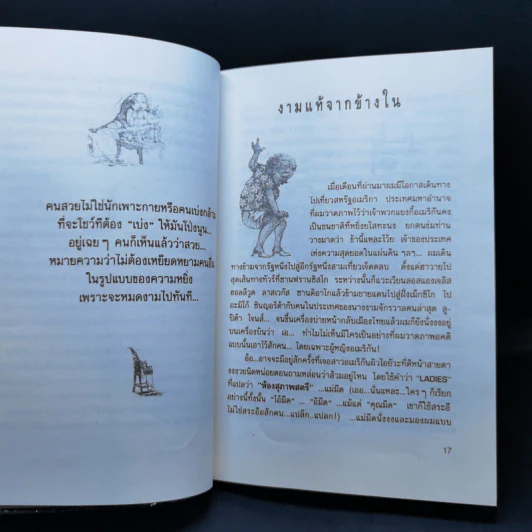 คนสวยไม่ใช่นักเพาะกายหรือคนเบ่งกล้าม
ที่จะโชว์ทีต้อง "เบ่ง" ให้มันโป่งนูน...
อยู่เฉยๆ คนก็เห็นแล้วว่าสวย...
หมายความว่าไม่ต้องเหยียดหยามคนอื่น
ในรูปแบบของความหยิ่ง
เพราะจะหมดงามไปทันที...
งามแท้จากข้างใน
เมื่อเดือนที่ผ่านมาผมมีโอกาสเดินทาง
ไปเที่ยวสหรัฐอเมริกา ประเทศมหาอำนาจ
ที่ผมวาดภาพไว้ว่าเจ้าพวกแยงกี้อเมริกันคง
เป็นชนชาติที่หยิ่งยโสทะนง ยกตนข่มท่าน
วางมาดว่า ข้านี้แหละโว้ย เจ้าของประเทศ
เฟ่งความสุดยอดในแผ่นดิน ฯลฯ... ผมเดิน
ทางข้ามจากรัฐหนึ่งไปสู่อีกรัฐหนึ่งสามเที่ยวเจ็ดตลบ ตั้งแต่ฮาวายไป
สุดเส้นทางที่ซานฟรานซิสโก ระหว่างนั้นก็แวะเวียนลอสแองเจลิส
ฮอลลีวูด ลาสเวกัส ซานดิอาโกแล้วข้ามชายแดนไปสู่ฝั่งเม็กซิโก ไป
อะมิโก้ ซินญอริต้ากับคนในประเทศของนางงามจักรวาลคนล่าสุด ลู-
ปิต้า โจนส์... จนขึ้นเครื่องบ่ายหน้ากลับเมืองไทยแล้วผมก็ยังนั่งงงอยู่
บนเครื่องบินว่า เอ... ทำไมไม่เห็นมีใครเป็นอย่างที่ผมวาดภาพอคติ
แบบนั้นเอาไว้สักคน... โดยเฉพาะผู้หญิงอเมริกัน!
อ้อ...อาจจะมีอยู่สักครั้งที่เจอสาวอเมริกันผิวโอยัวะที่ตีหน้าสายตา
งงงวยนิดหน่อยตอนถามหล่อนว่าส้วมอยู่ไหน โดยใช้คำว่า "LADIES"
ที่แปลว่า "ห้องสุภาพสตรี" ...แม่มืด (เออ...นั่นแหละ...ใครๆ ก็เรียก
อย่างนี้ทั้งนั้น "ไอ้มืด" ... "อีมืด" ...แม้แต่ "คุณมืด" เขาก็ใช้สระอี
ไม่ใช่สระอือสักคน...แปลึก...แปลก!) ...แม่มืดนั่งงงและมองผมแบบ
17